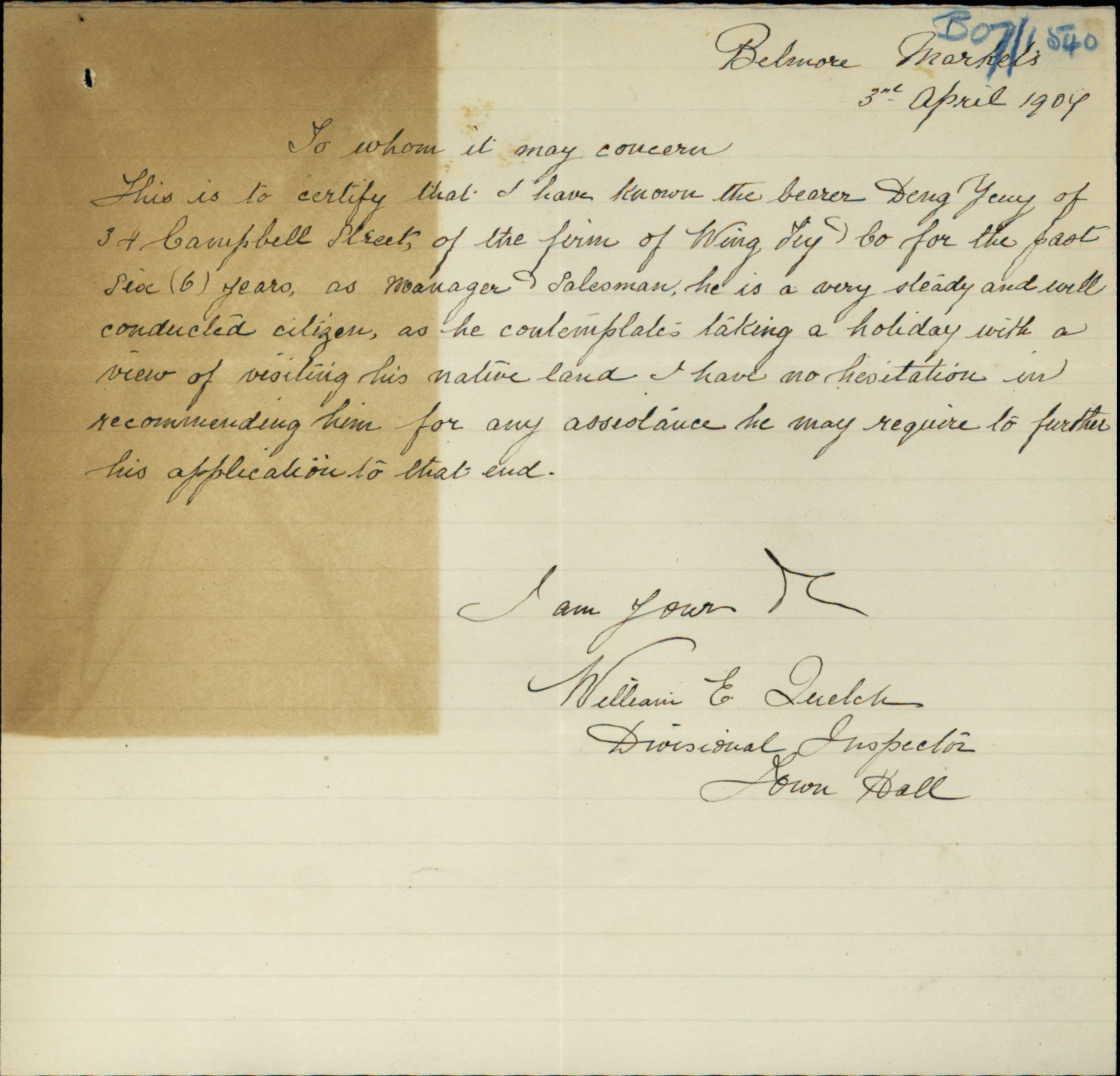 B07/1540
Belmore Markets
3rd April 1907
To whom it may concern
This is to certify that I have known the bearer Deng Yeuy of
34 Campbell Street, of the firm of Wing Tiy & Co for the past
Six (6) years, as Manager & Salesman, he is a very steady and well
conducted citizen, as he contemplates taking a holiday with a
view of visiting his native land I have no hesitation in
recommending him for any assistance he may require to further
his application to that end.
I am yours
William E Quelch
Divisional Inspector
Town Hall